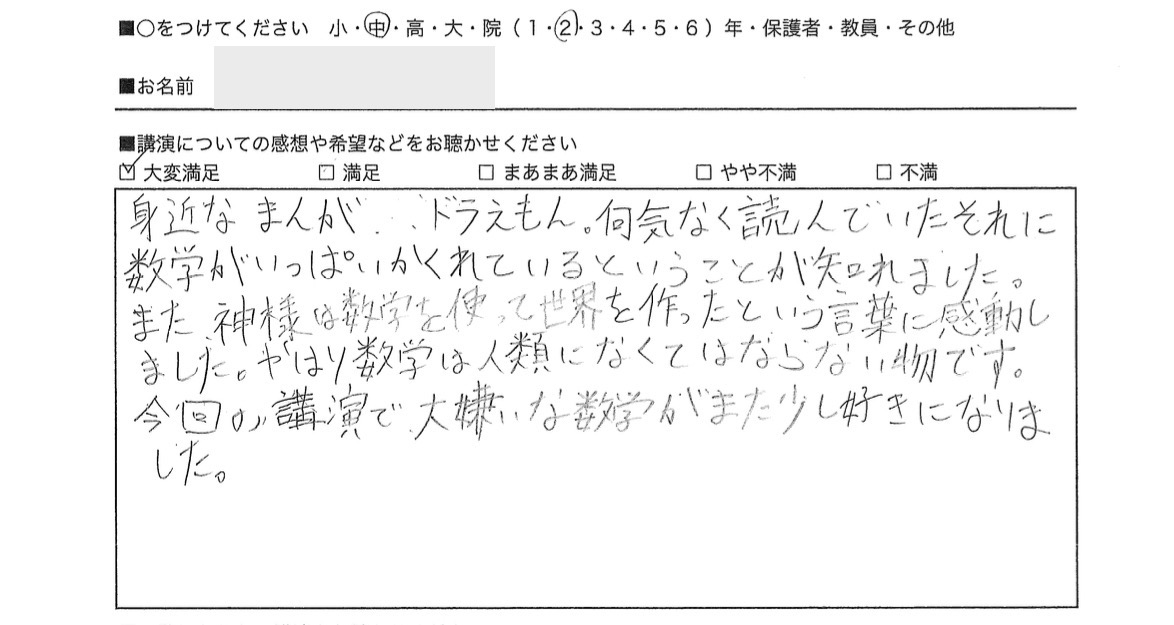 ■○をつけてください 小・中・高・大・院（1・2・3・4・5・6）年・保護者・教員・その他
■お名前
■講演についての感想や希望などをお聴かせください
☑ 大変満足 □ 満足 □ まあまあ満足 □ やや不満 □ 不満
身近な まんが . . ドラえもん。何気なく読んでいたそれに
数学がいっぱいかくれているということが知れました。
また 神様は数学を使って世界を作ったという言葉に感動し
ました。やはり数学は人類になくてはならない物です。
今回の講演で大嫌いな数学がまた少し好きになりま
した。